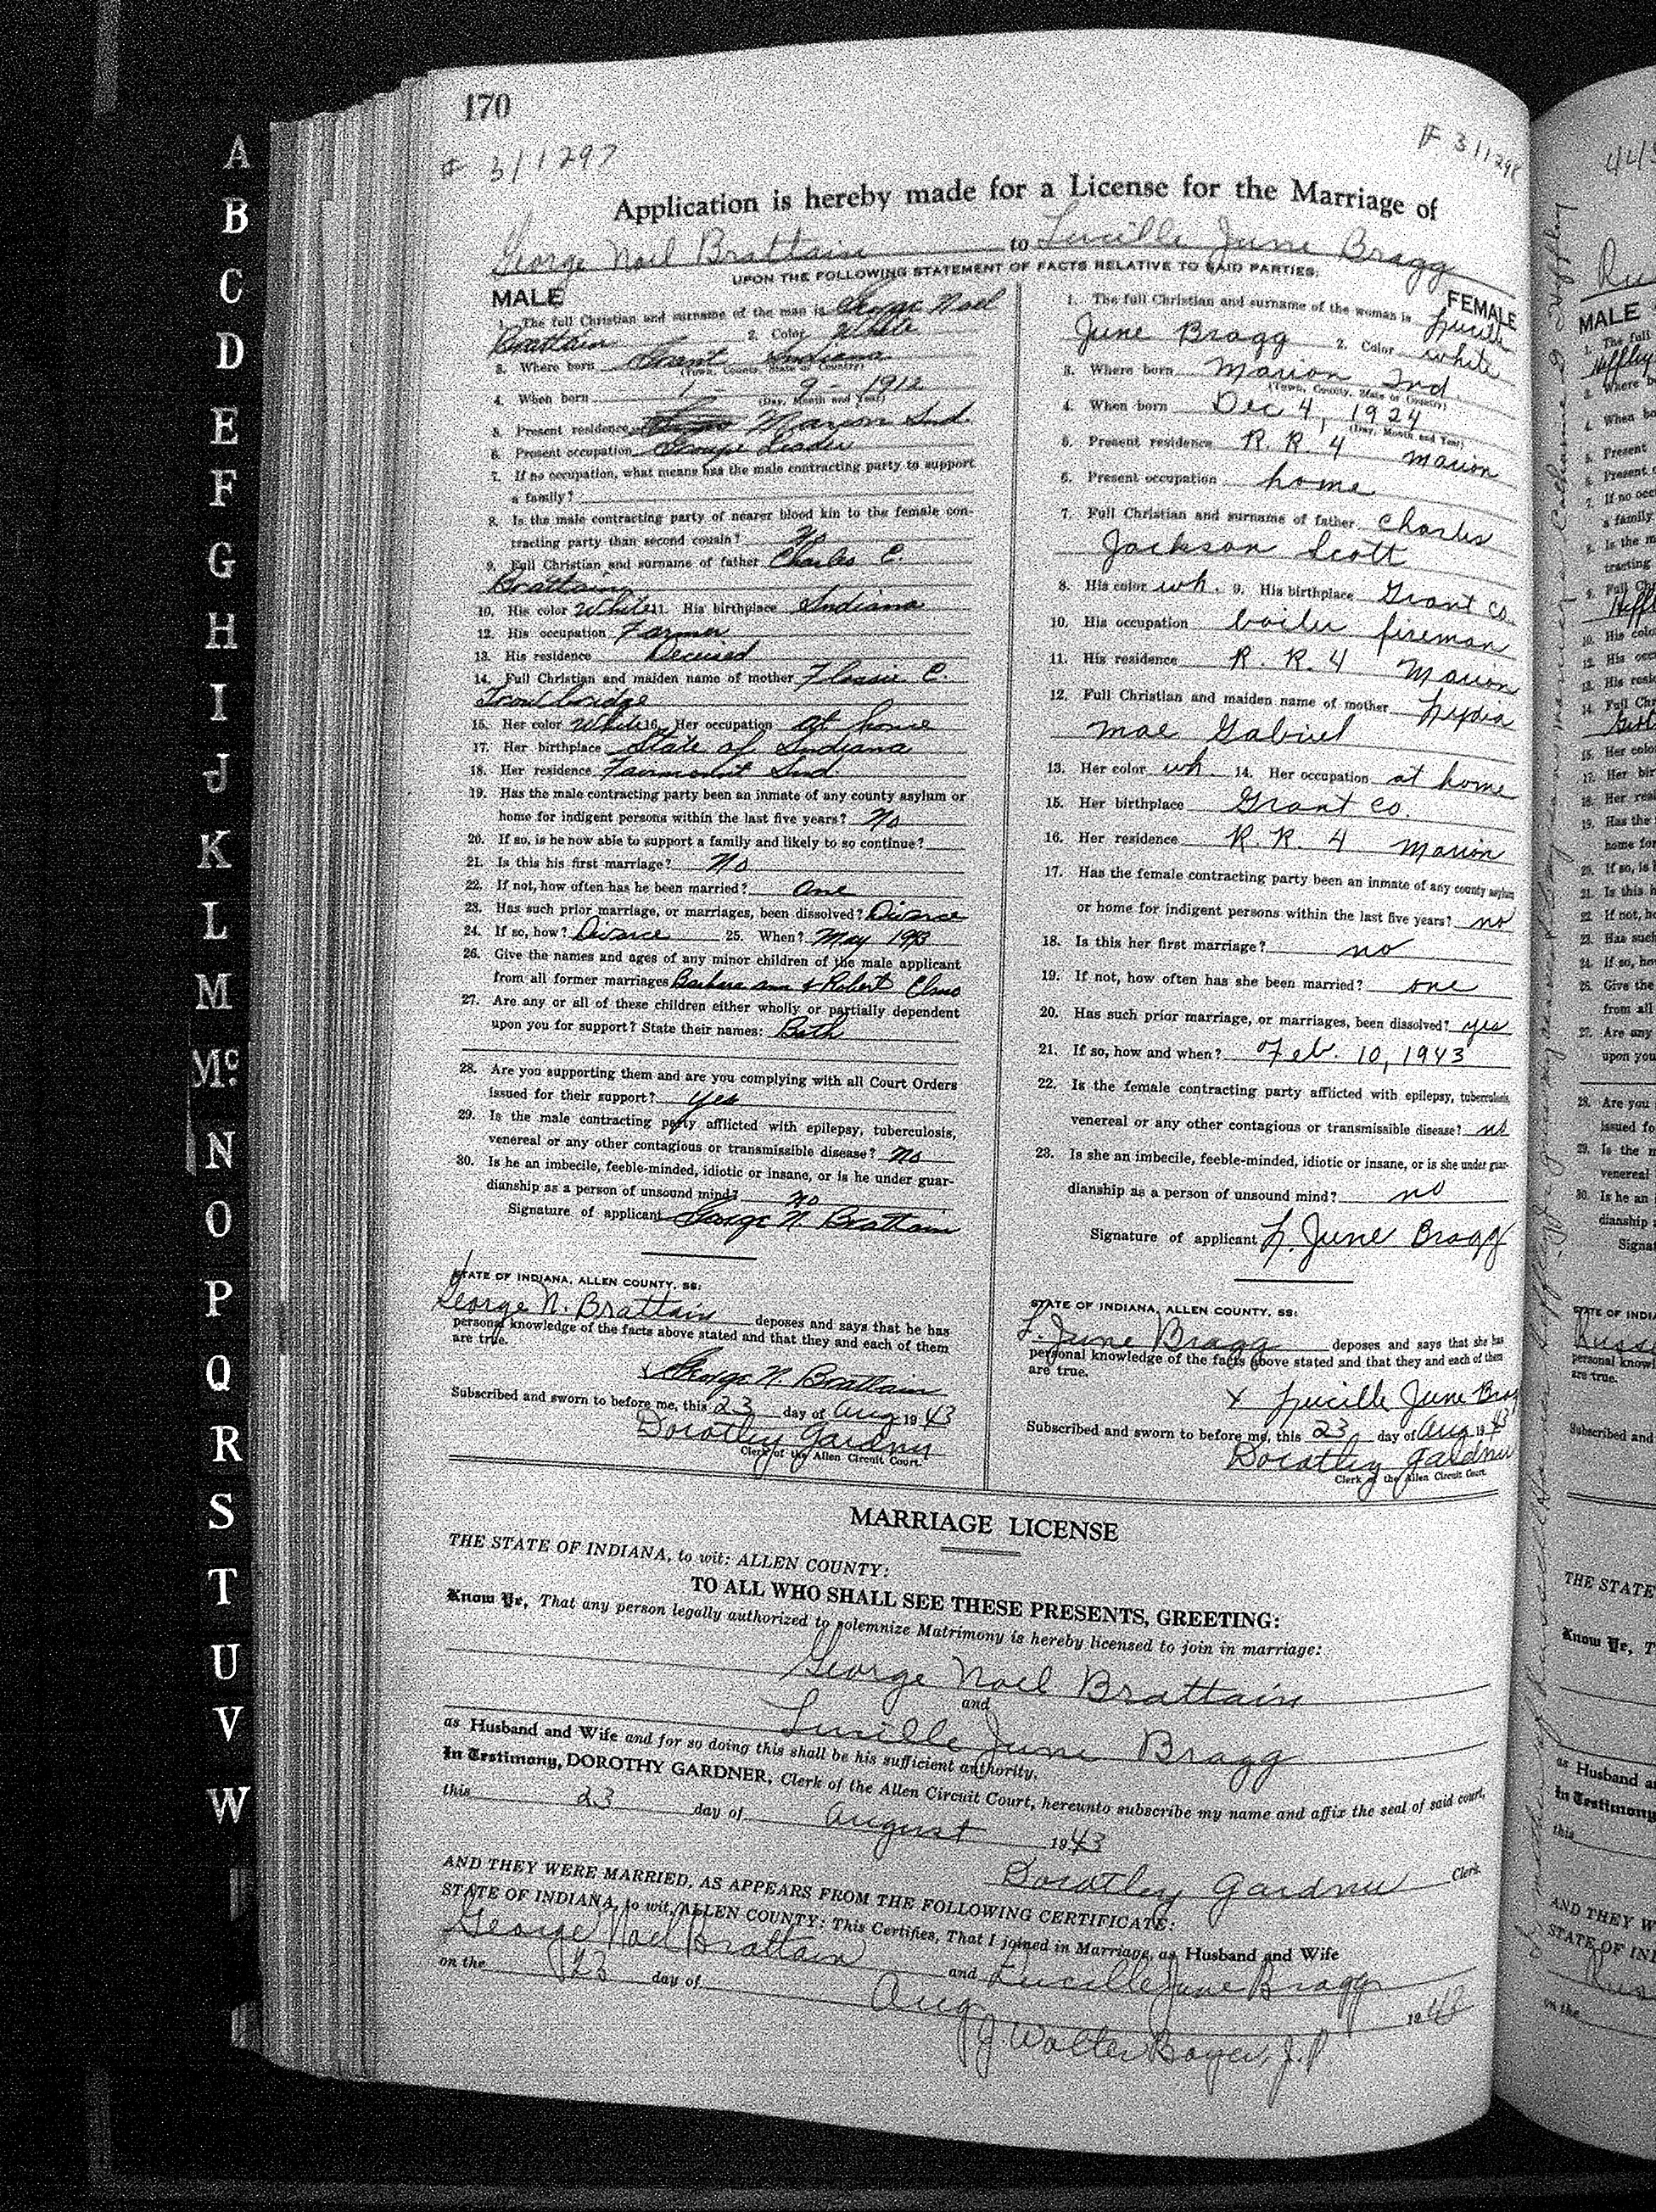 170
# 311297
F 31129
Application is hereby made for a License for the Marriage of
George Noel Brattain to Lucille June Bragg
UPON THE FOLLOWING STATEMENT OF FACTS RELATIVE TO SAID PARTIES:
MALE
1. The full Christian and surname of the man is George Noel
Brattain 2. Color White
3. Where born Grant Indiana
(Town, County, State or Country)
4. When born 1 - 9 - 1912
(Day, Month and Year)
5. Present residence Marion Ind.
6. Present occupation Group Leader
7. If no occupation, what means has the male contracting party to support
a family?
8. Is the male contracting party of nearer blood kin to the female con-
tracting party than second cousin? No
9. Full Christian and surname of father Charles E.
Brattain
10. His color White 11. His birthplace Indiana
12. His occupation Farmer
13. His residence Deceased
14. Full Christian and maiden name of mother Flossie E.
Trowbridge
15. Her color White 16. Her occupation at home
17. Her birthplace State of Indiana
18. Her residence Fairmount Ind.
19. Has the male contracting party been an inmate of any county asylum or
home for indigent persons within the last five years? No
20. If so, is he now able to support a family and likely to so continue?
21. Is this his first marriage? No
22. If not, how often has he been married? One
23. Has such prior marriage, or marriages, been dissolved? Divorce
24. If so, how? Divorce 25. When? May 1943
26. Give the names and ages of any minor children of the male applicant
from all former marriages Barbara Ann & Robert Elmo
27. Are any or all of these children either wholly or partially dependent
upon you for support? State their names: Both
28. Are you supporting them and are you complying with all Court Orders
issued for their support? yes
29. Is the male contracting party afflicted with epilepsy, tuberculosis,
venereal or any other contagious or transmissible disease? No
30. Is he an imbecile, feeble-minded, idiotic or insane, or is he under guar-
dianship as a person of unsound mind? no
Signature of applicant George N. Brattain
STATE OF INDIANA, ALLEN COUNTY, SS:
George N. Brattain deposes and says that he has
personal knowledge of the facts above stated and that they and each of them
are true.
x George N. Brattain
Subscribed and sworn to before me, this 23 day of Aug 1943
Dorothy Gardner
Clerk of the Allen Circuit Court.
FEMALE
1. The full Christian and surname of the woman is Lucille
June Bragg 2. Color white
3. Where born Marion Ind.
(Town, County, State or Country)
4. When born Dec 4, 1924
(Day, Month and Year)
5. Present residence R. R. 4 Marion
6. Present occupation home
7. Full Christian and surname of father Charles
Jackson Scott
8. His color wh. 9. His birthplace Grant Co.
10. His occupation boiler fireman
11. His residence R. R. 4 Marion
12. Full Christian and maiden name of mother Lydia
Mae Gabriel
13. Her color wh. 14. Her occupation at home
15. Her birthplace Grant Co.
16. Her residence R. R. 4 Marion
17. Has the female contracting party been an inmate of any county asylum
or home for indigent persons within the last five years? no
18. Is this her first marriage? no
19. If not, how often has she been married? one
20. Has such prior marriage, or marriages, been dissolved? yes
21. If so, how and when? Feb. 10, 1943
22. Is the female contracting party afflicted with epilepsy, tuberculosis,
venereal or any other contagious or transmissible disease? no
23. Is she an imbecile, feeble-minded, idiotic or insane, or is she under guar-
dianship as a person of unsound mind? no
Signature of applicant L. June Bragg
STATE OF INDIANA, ALLEN COUNTY, SS:
L. June Bragg deposes and says that she has
personal knowledge of the facts above stated and that they and each of them
are true.
x Lucille June Brag
Subscribed and sworn to before me, this 23 day of Aug 1943
Dorothy Gardner
Clerk of the Allen Circuit Court.
MARRIAGE LICENSE
THE STATE OF INDIANA, to wit: ALLEN COUNTY:
TO ALL WHO SHALL SEE THESE PRESENTS, GREETING:
Know Ye, That any person legally authorized to solemnize Matrimony is hereby licensed to join in marriage:
George Noel Brattain
and
Lucille June Bragg
as Husband and Wife and for so doing this shall be his sufficient authority.
In Testimony, DOROTHY GARDNER, Clerk of the Allen Circuit Court, hereunto subscribe my name and affix the seal of said court,
this 23 day of August 1943
Dorothy Gardner Clerk
AND THEY WERE MARRIED, AS APPEARS FROM THE FOLLOWING CERTIFICATE:
STATE OF INDIANA, to wit, ALLEN COUNTY: This Certifies, That I joined in Marriage, as Husband and Wife
George Noel Brattain and Lucille June Bragg
on the 23 day of Aug 1943
J. Walter Boyer, J.P.
A
B
C
D
E
F
G
H
I
J
K
L
M
Mc.
N
O
P
Q
R
S
T
U
V
W